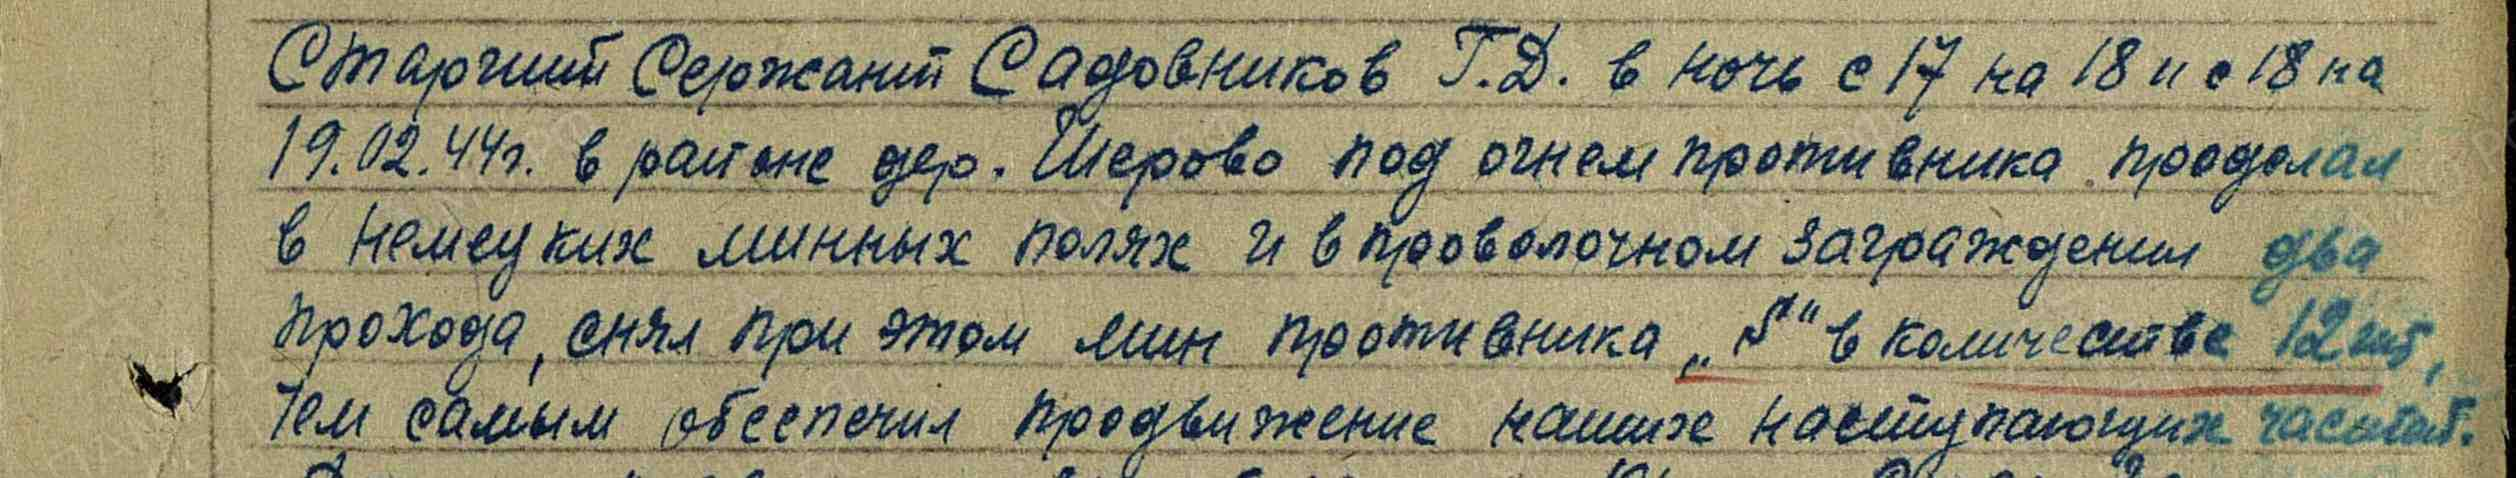 Старший Сержант Садовников Г.Д. в ночь с 17 на 18 и с 18 на
19.02.44г. в районе дер. Шерово под огнем противника проделал
в немецких минных полях и в проволочном заграждении два
прохода, снял при этом мин противника „S“ в количестве 12 шт,
тем самым обеспечил продвижение наших наступающих частей.